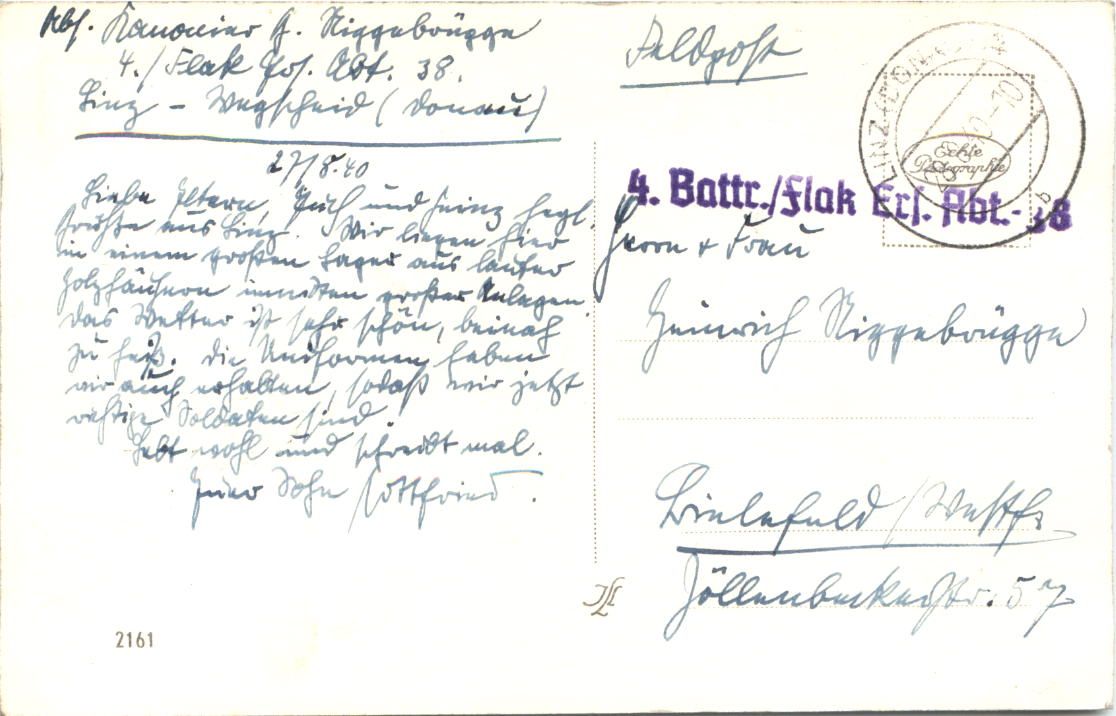 Abs. Kanonier G. Niggebrügge
4./Flak Ers. Abt. 38.
Linz – Wegscheid (Donau)
27/8.40
Liebe Eltern, Euch und Heinz herzl.
Grüße aus Linz. Wir liegen hier
in einem großen Lager aus lauter
Holzhäusern inmitten großer Anlagen.
Das Wetter ist sehr schön, beinah
zu heiß. Die Uniformen haben
wir auch erhalten, sodaß wir jetzt
richtige Soldaten sind.
Lebt wohl und schreibt mal.
Euer Sohn Gottfried.
2161
Feldpost
LINZ (DONAU)
10
b
Echte
Photographie
4. Battr./Flak Ers. Abt.- 38
Herrn + Frau
Heinrich Niggebrügge
Bielefeld /Westf.
Jöllenbeckerstr. 57